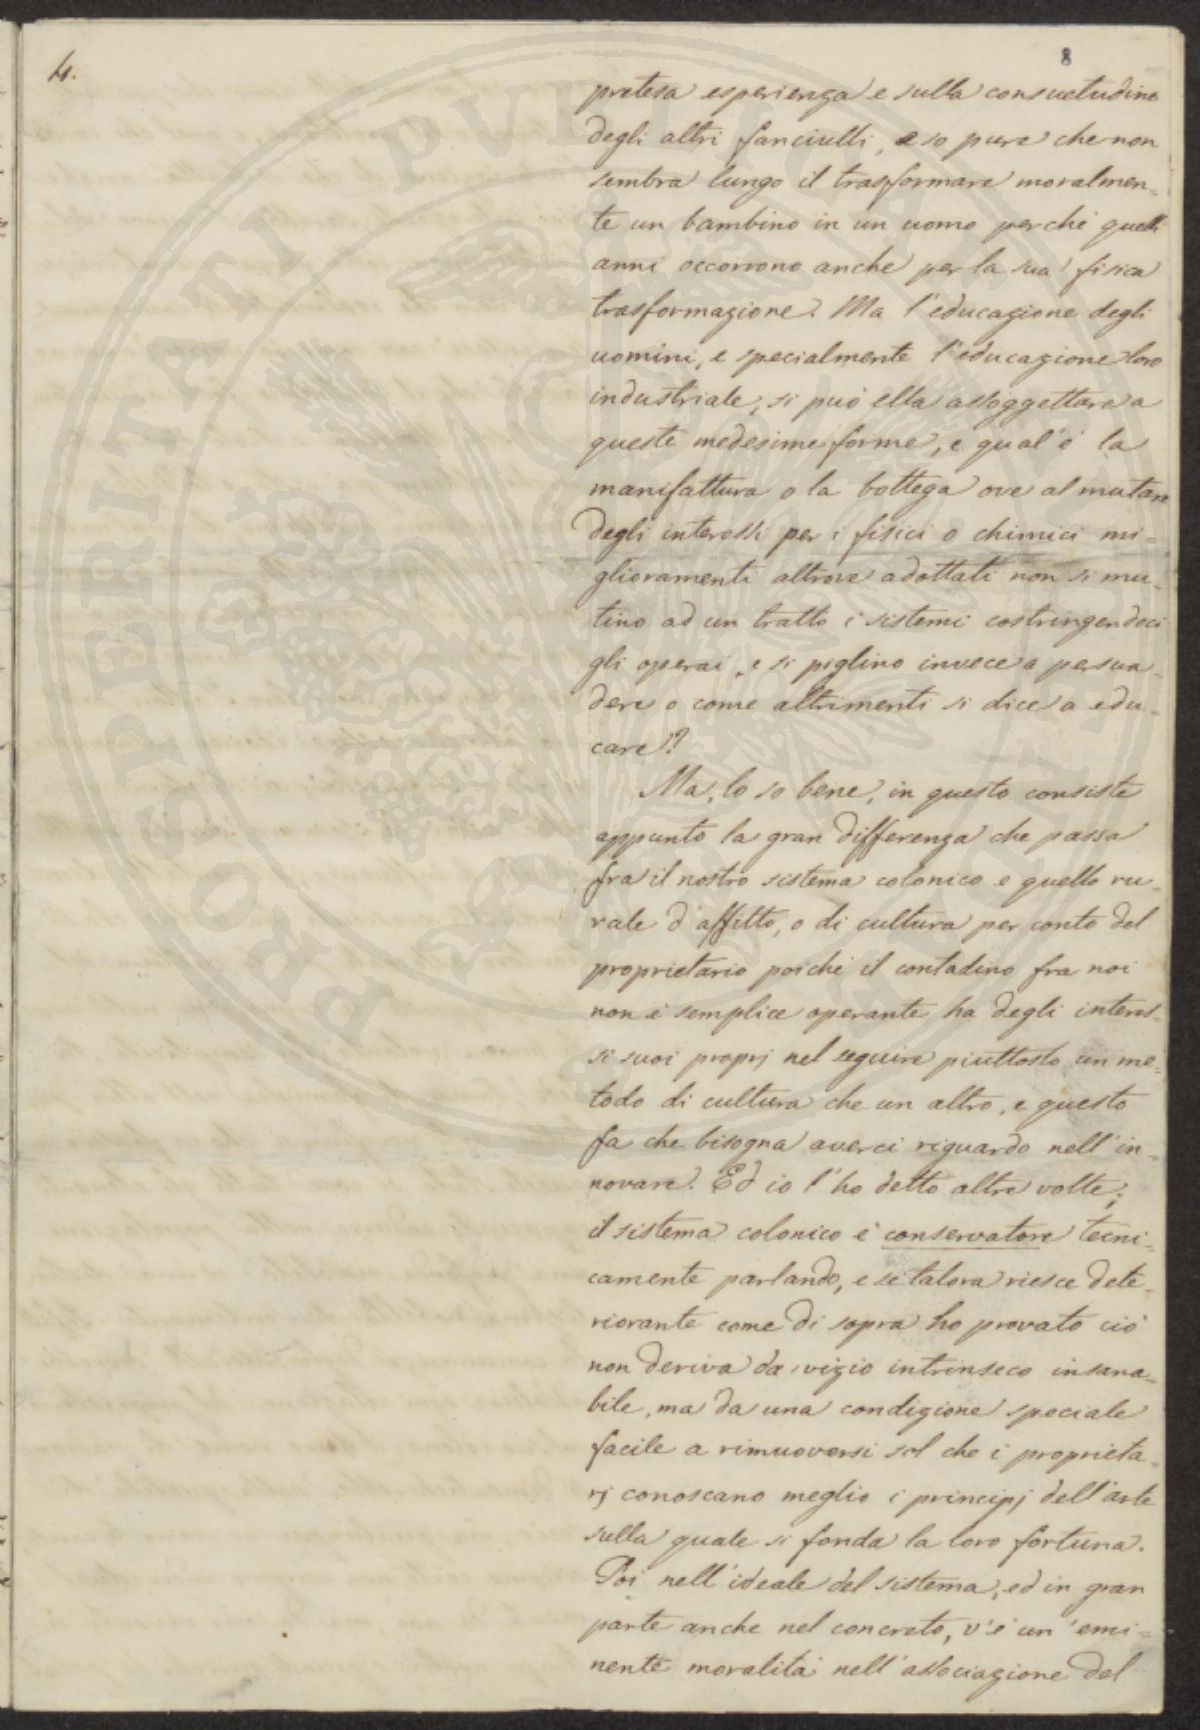 4.
8
pretesa esperienza e sulla consuetudine
degli altri fanciulli, e so pure che non
sembra lungo il trasformare moralmen-
te un bambino in un uomo perchè quelli
anni occorrono anche per la sua fisica
trasformazione. Ma l'educazione degli
uomini, e specialmente l'educazione loro
industriale, si può ella assoggettare a
queste medesime forme, e qual'è la
manifattura o la bottega ove al mutare
degli interessi per i fisici o chimici mi-
glioramenti altrove adottati non si mu-
tino ad un tratto i sistemi costringendoci
gli operai, e si piglino invece a persua-
dere o come altrimenti si dice a edu-
care?
Ma, lo so bene, in questo consiste
appunto la gran differenza che passa
fra il nostro sistema colonico e quello ru-
rale d'affitto, o di cultura per conto del
proprietario poichè il contadino fra noi
non è semplice operante ha degli interes-
si suoi proprj nel seguire piuttosto un me-
todo di cultura che un altro, e questo
fa che bisogna averci riguardo nell'in-
novare. Ed io l'ho detto altre volte;
il sistema colonico è conservatore tecni-
camente parlando, e se talora riesce dete-
riorante come di sopra ho provato ciò
non deriva da vizio intrinseco insana-
bile, ma da una condizione speciale
facile a rimuoversi sol che i proprieta-
rj conoscano meglio i principj dell'arte
sulla quale si fonda la loro fortuna.
Poi nell'ideale del sistema, ed in gran
parte anche nel concreto, v'è un'emi-
nente moralità nell'associazione del
PROSPERITATI PVBLICAE